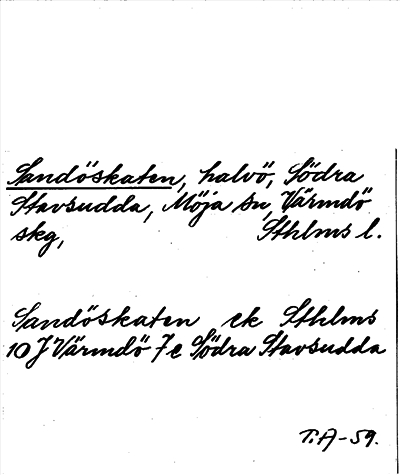 Sandöskaten, halvö, Södra
Stavsudda, Möja sn, Värmdö
skg, Sthlms l.
Sandöskaten ek Sthlms
10 J Värmdö 7e Södra Stavsudda
T.A-59.